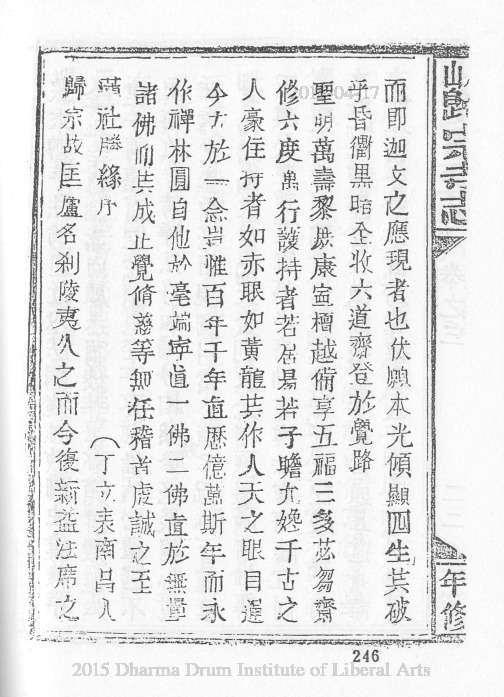 而即迦文之應現者也伏願本光傾顯四生其破
乎昏衢黑暗全收六道齊登於覺路
聖明萬壽黎庶康寧檀越備享五福三多苾芻齋
修六度萬行護持者若居易若子瞻尤媲千古之
人豪住持者如赤眼如黃龍其作人天之眼目邁
今古於一念豈惟百年千年直歷億萬斯年而永
作禪林圓自他於毫端寧直一佛二佛直於無量
諸佛而共成正覺脩慈等無任稽首虔誠之至
蓮社勝緣序
(丁立表南昌人
歸宗故匡廬名剎陵夷久之而今復新蓋法席之
歸宗寺志
年修
246
2015 Dharma Drum Institute of Liberal Arts